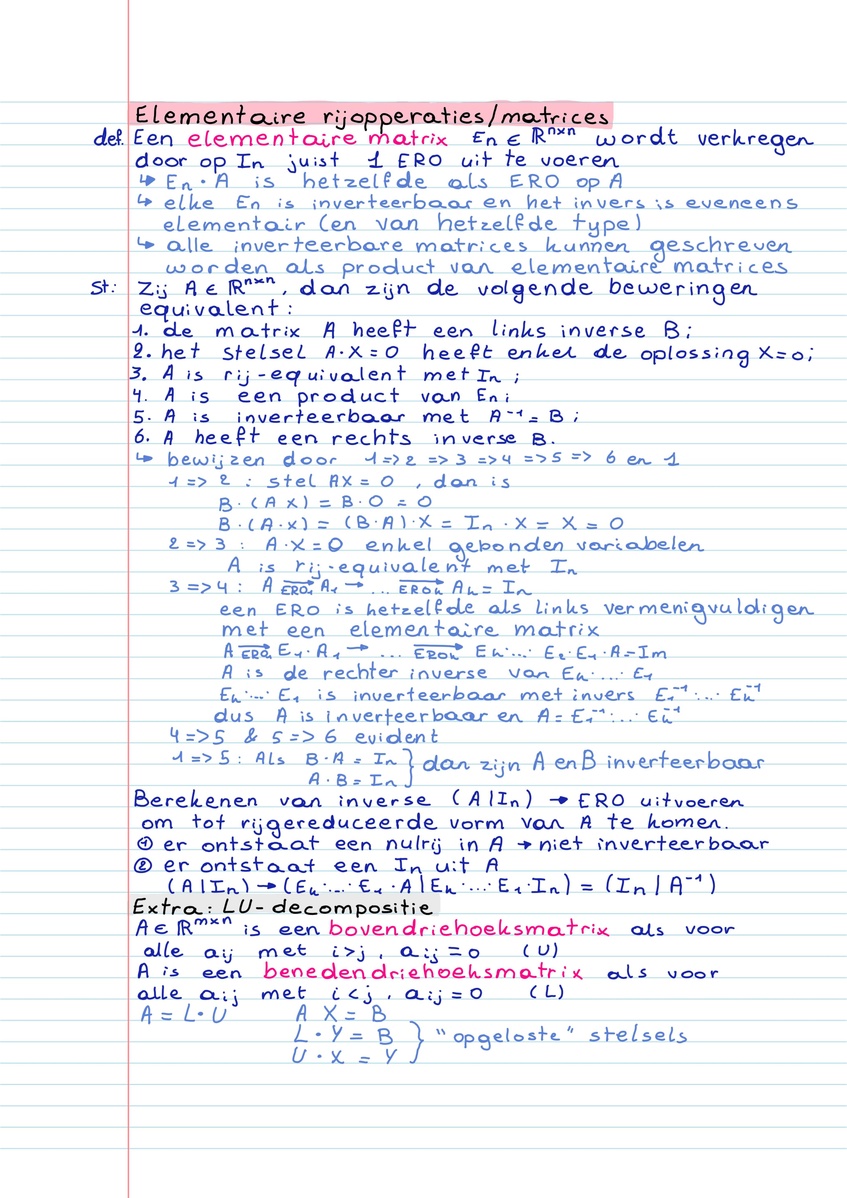 Elementaire rijopperaties/matrices
def. Een elementaire matrix En ∈ ℝⁿˣⁿ wordt verkregen
door op In juist 1 ERO uit te voeren
↳ En · A is hetzelfde als ERO op A
↳ elke En is inverteerbaar en het invers is eveneens
elementair (en van hetzelfde type)
↳ alle inverteerbare matrices kunnen geschreven
worden als product van elementaire matrices
St: Zij A ∈ ℝⁿˣⁿ, dan zijn de volgende beweringen
equivalent:
1. de matrix A heeft een links inverse B;
2. het stelsel A·X = 0 heeft enkel de oplossing X=0;
3. A is rij-equivalent met In;
4. A is een product van En;
5. A is inverteerbaar met A⁻¹ = B;
6. A heeft een rechts inverse B.
↳ bewijzen door 1=>2 => 3 => 4 => 5 => 6 en 1
1 => 2 : stel AX = 0, dan is
B·(AX) = B·0 = 0
B·(A·X) = (B·A)·X = In · X = X = 0
2 => 3 : A·X = 0 enkel gebonden variabelen
A is rij-equivalent met In
3 => 4 : A →ERO₁ A₁ → ... →EROk Ak = In
een ERO is hetzelfde als links vermenigvuldigen
met een elementaire matrix
A →ERO₁ E₁·A₁ → ... →EROk Ek·...· E₂·E₁·A=Im
A is de rechter inverse van Ek·...· E₁
Ek·...· E₁ is inverteerbaar met invers E₁⁻¹·...· Ek⁻¹
dus A is inverteerbaar en A = E₁⁻¹·...· Ek⁻¹
4=>5 & 5=>6 evident
1=>5 : Als B·A = In } dan zijn A en B inverteerbaar
A·B = In
Berekenen van inverse (A|In) → ERO uitvoeren
om tot rijgereduceerde vorm van A te komen.
① er ontstaat een nulrij in A → niet inverteerbaar
② er ontstaat een In uit A
(A|In) → (Ek·...· E₁·A|Ek·...· E₁·In) = (In|A⁻¹)
Extra: LU-decompositie
A ∈ ℝᵐˣⁿ is een bovendriehoeksmatrix als voor
alle aij met i>j, aij = 0 (U)
A is een benedendriehoeksmatrix als voor
alle aij met i<j, aij = 0 (L)
A = L·U A X = B
L·Y = B } "opgeloste" stelsels
U·X = Y